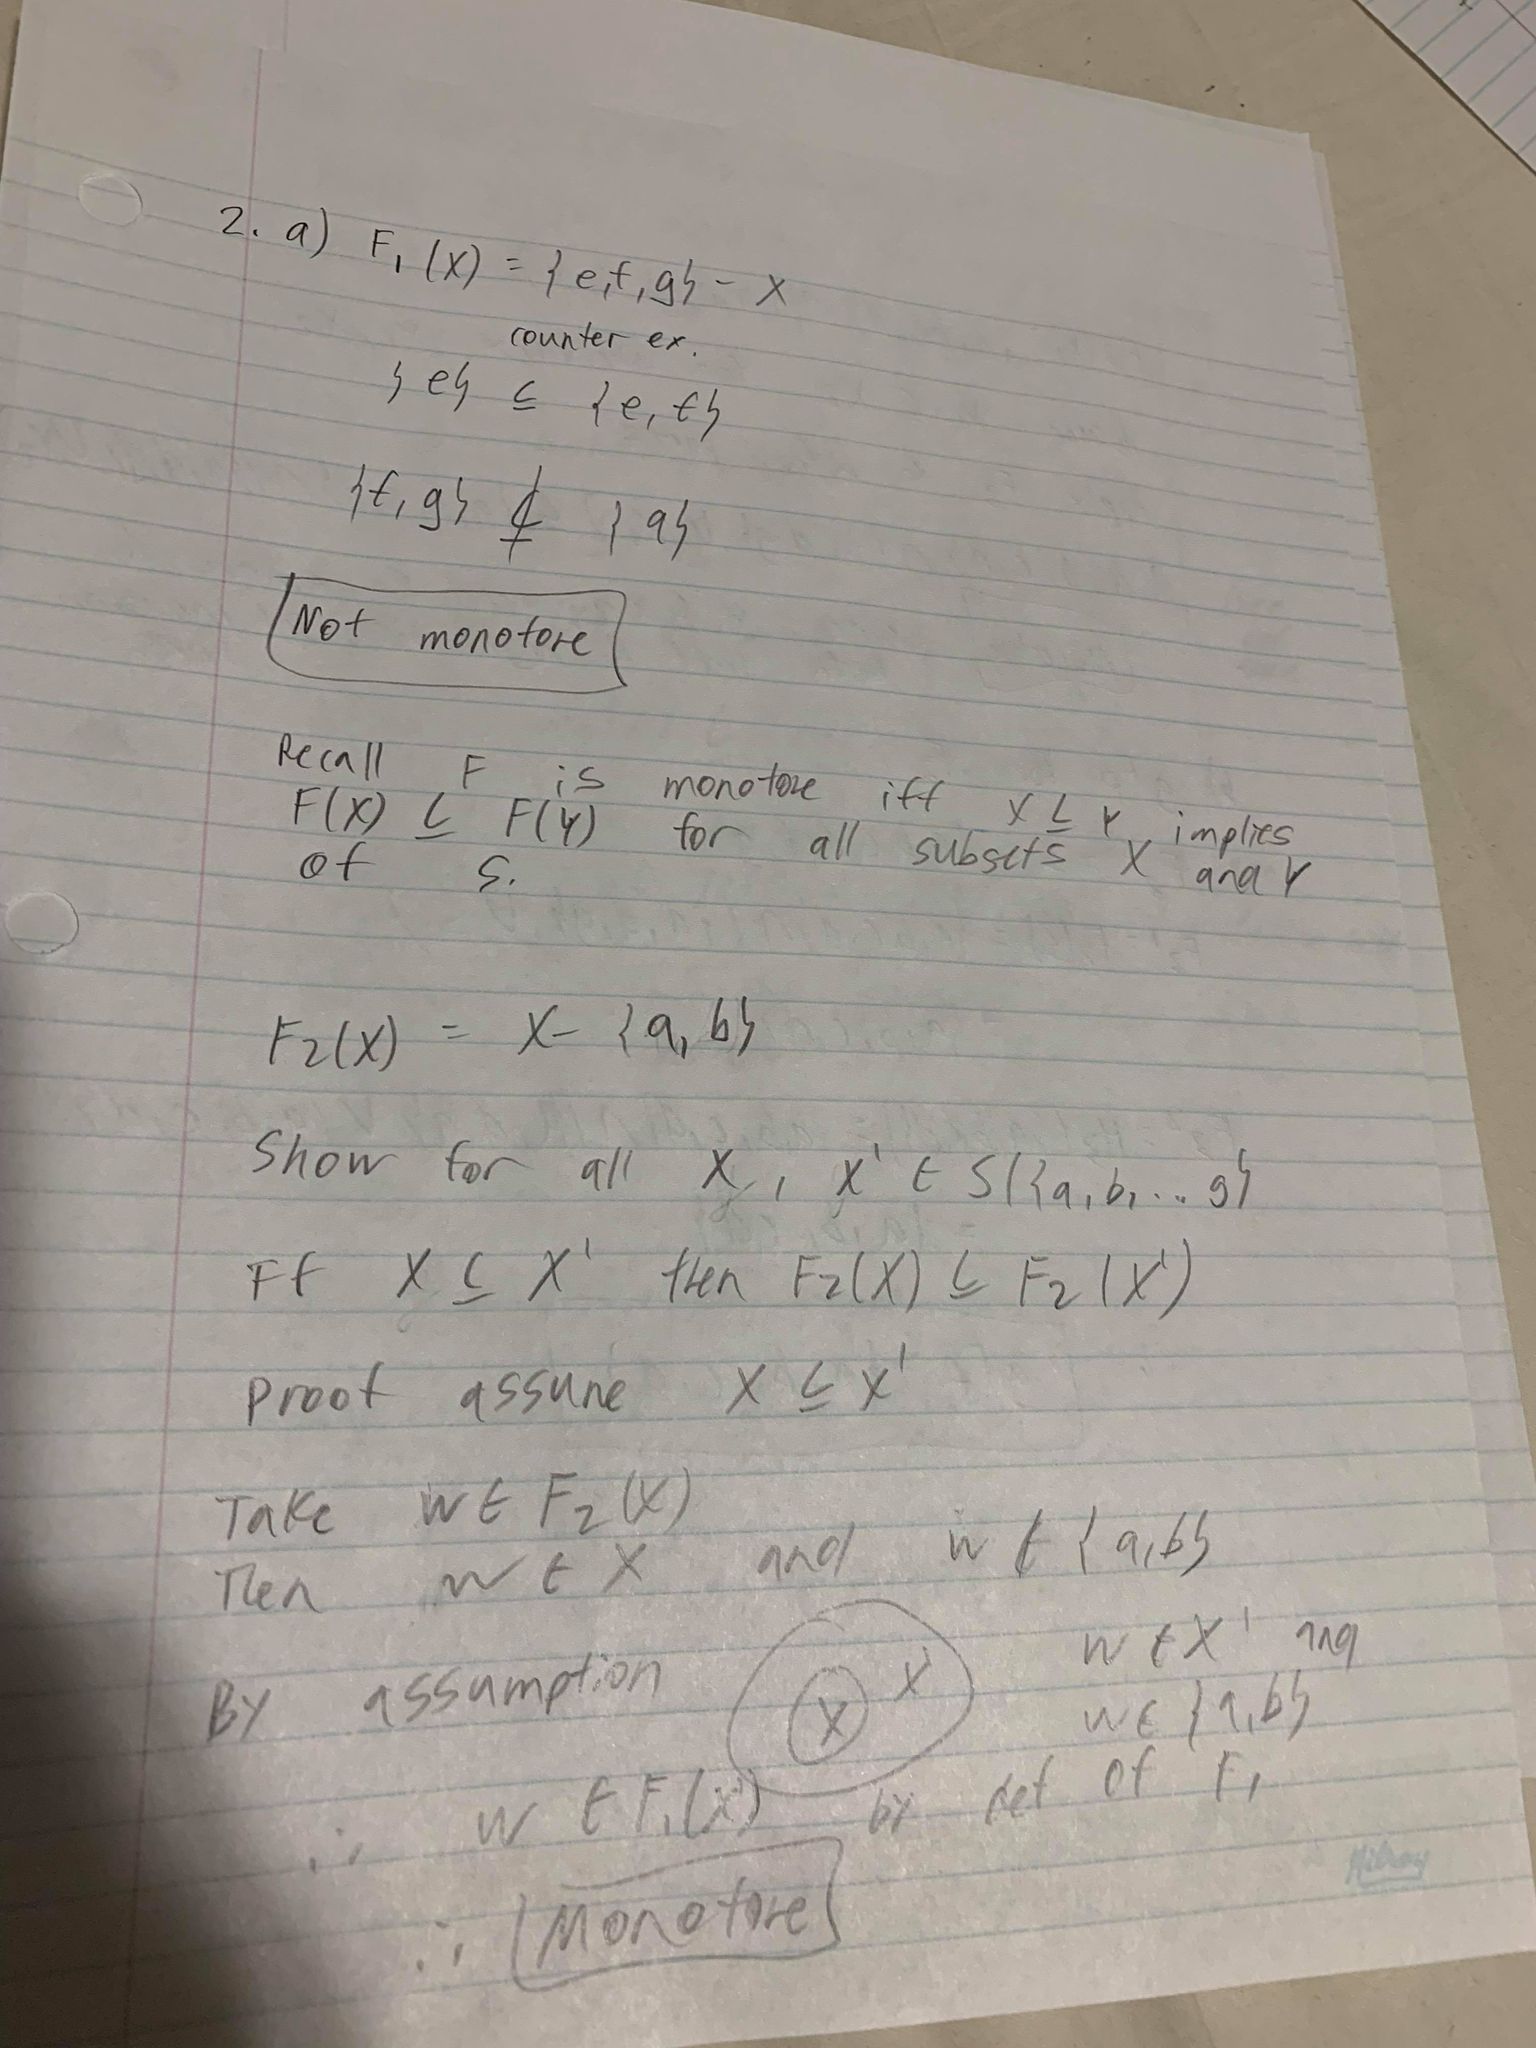 2. a) F₁(X) = {e,f,g} - X
counter ex.
{e} ⊆ {e,f}
{f,g} ⊈ {g}
Not monotone
Recall F is monotone iff X ⊆ Y implies
F(X) ⊆ F(Y) for all subsets X and Y
of S.
F₂(X) = X - {a,b}
Show for all X, X' ∈ S({a,b,...g}
If X ⊆ X' then F₂(X) ⊆ F₂(X')
Proof assume X ⊆ X'
Take w ∈ F₂(X)
Then w ∈ X and w ∉ {a,b}
By assumption X X' w ∈ X' and
w ∈ {a,b}
∴ w ∈ F₁(X') by def of F₁
∴ Monotone
Hilroy